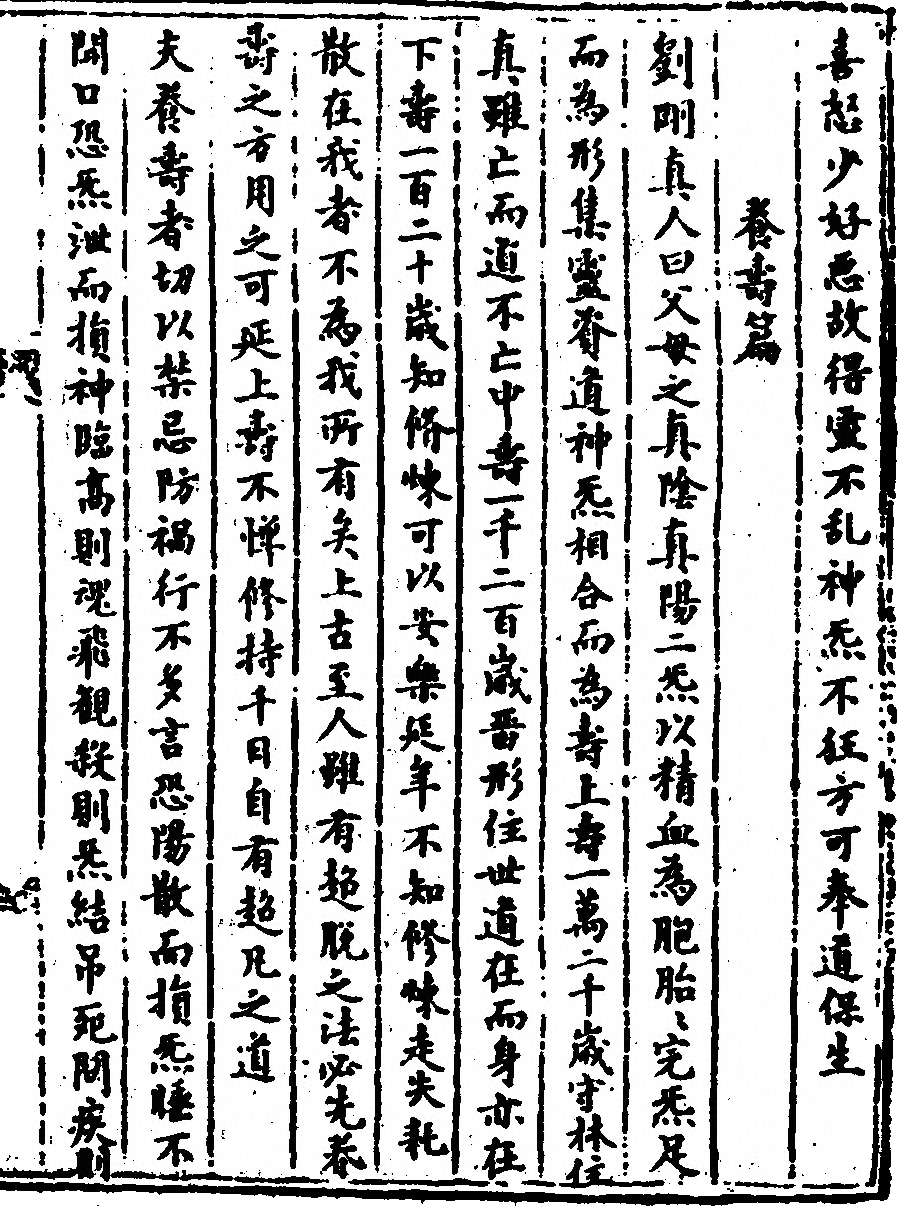 喜怒少好惡故得靈不乱神炁不狂方可奉道保生
養壽篇
劉剛真人曰父母之真陰真陽二炁以精血為胞胎〻完炁足
而為形集靈資道神炁相合而為壽上壽一萬二千歲守林住
真雖亡而道不亡中壽一千二百歲畱形住世道在而身亦在
下壽一百二十歲知脩煉可以安樂延年不知修煉走失耗
散在我者不為我所有矣上古至人雖有超脫之法必先養
壽之方用之可延上壽不憚修持千日自有超凡之道
夫養壽者切以禁忌防禍行不多言恐陽散而損炁睡不
開口恐炁泄而損神臨高則魂飛觀殺則炁結吊死問疾則